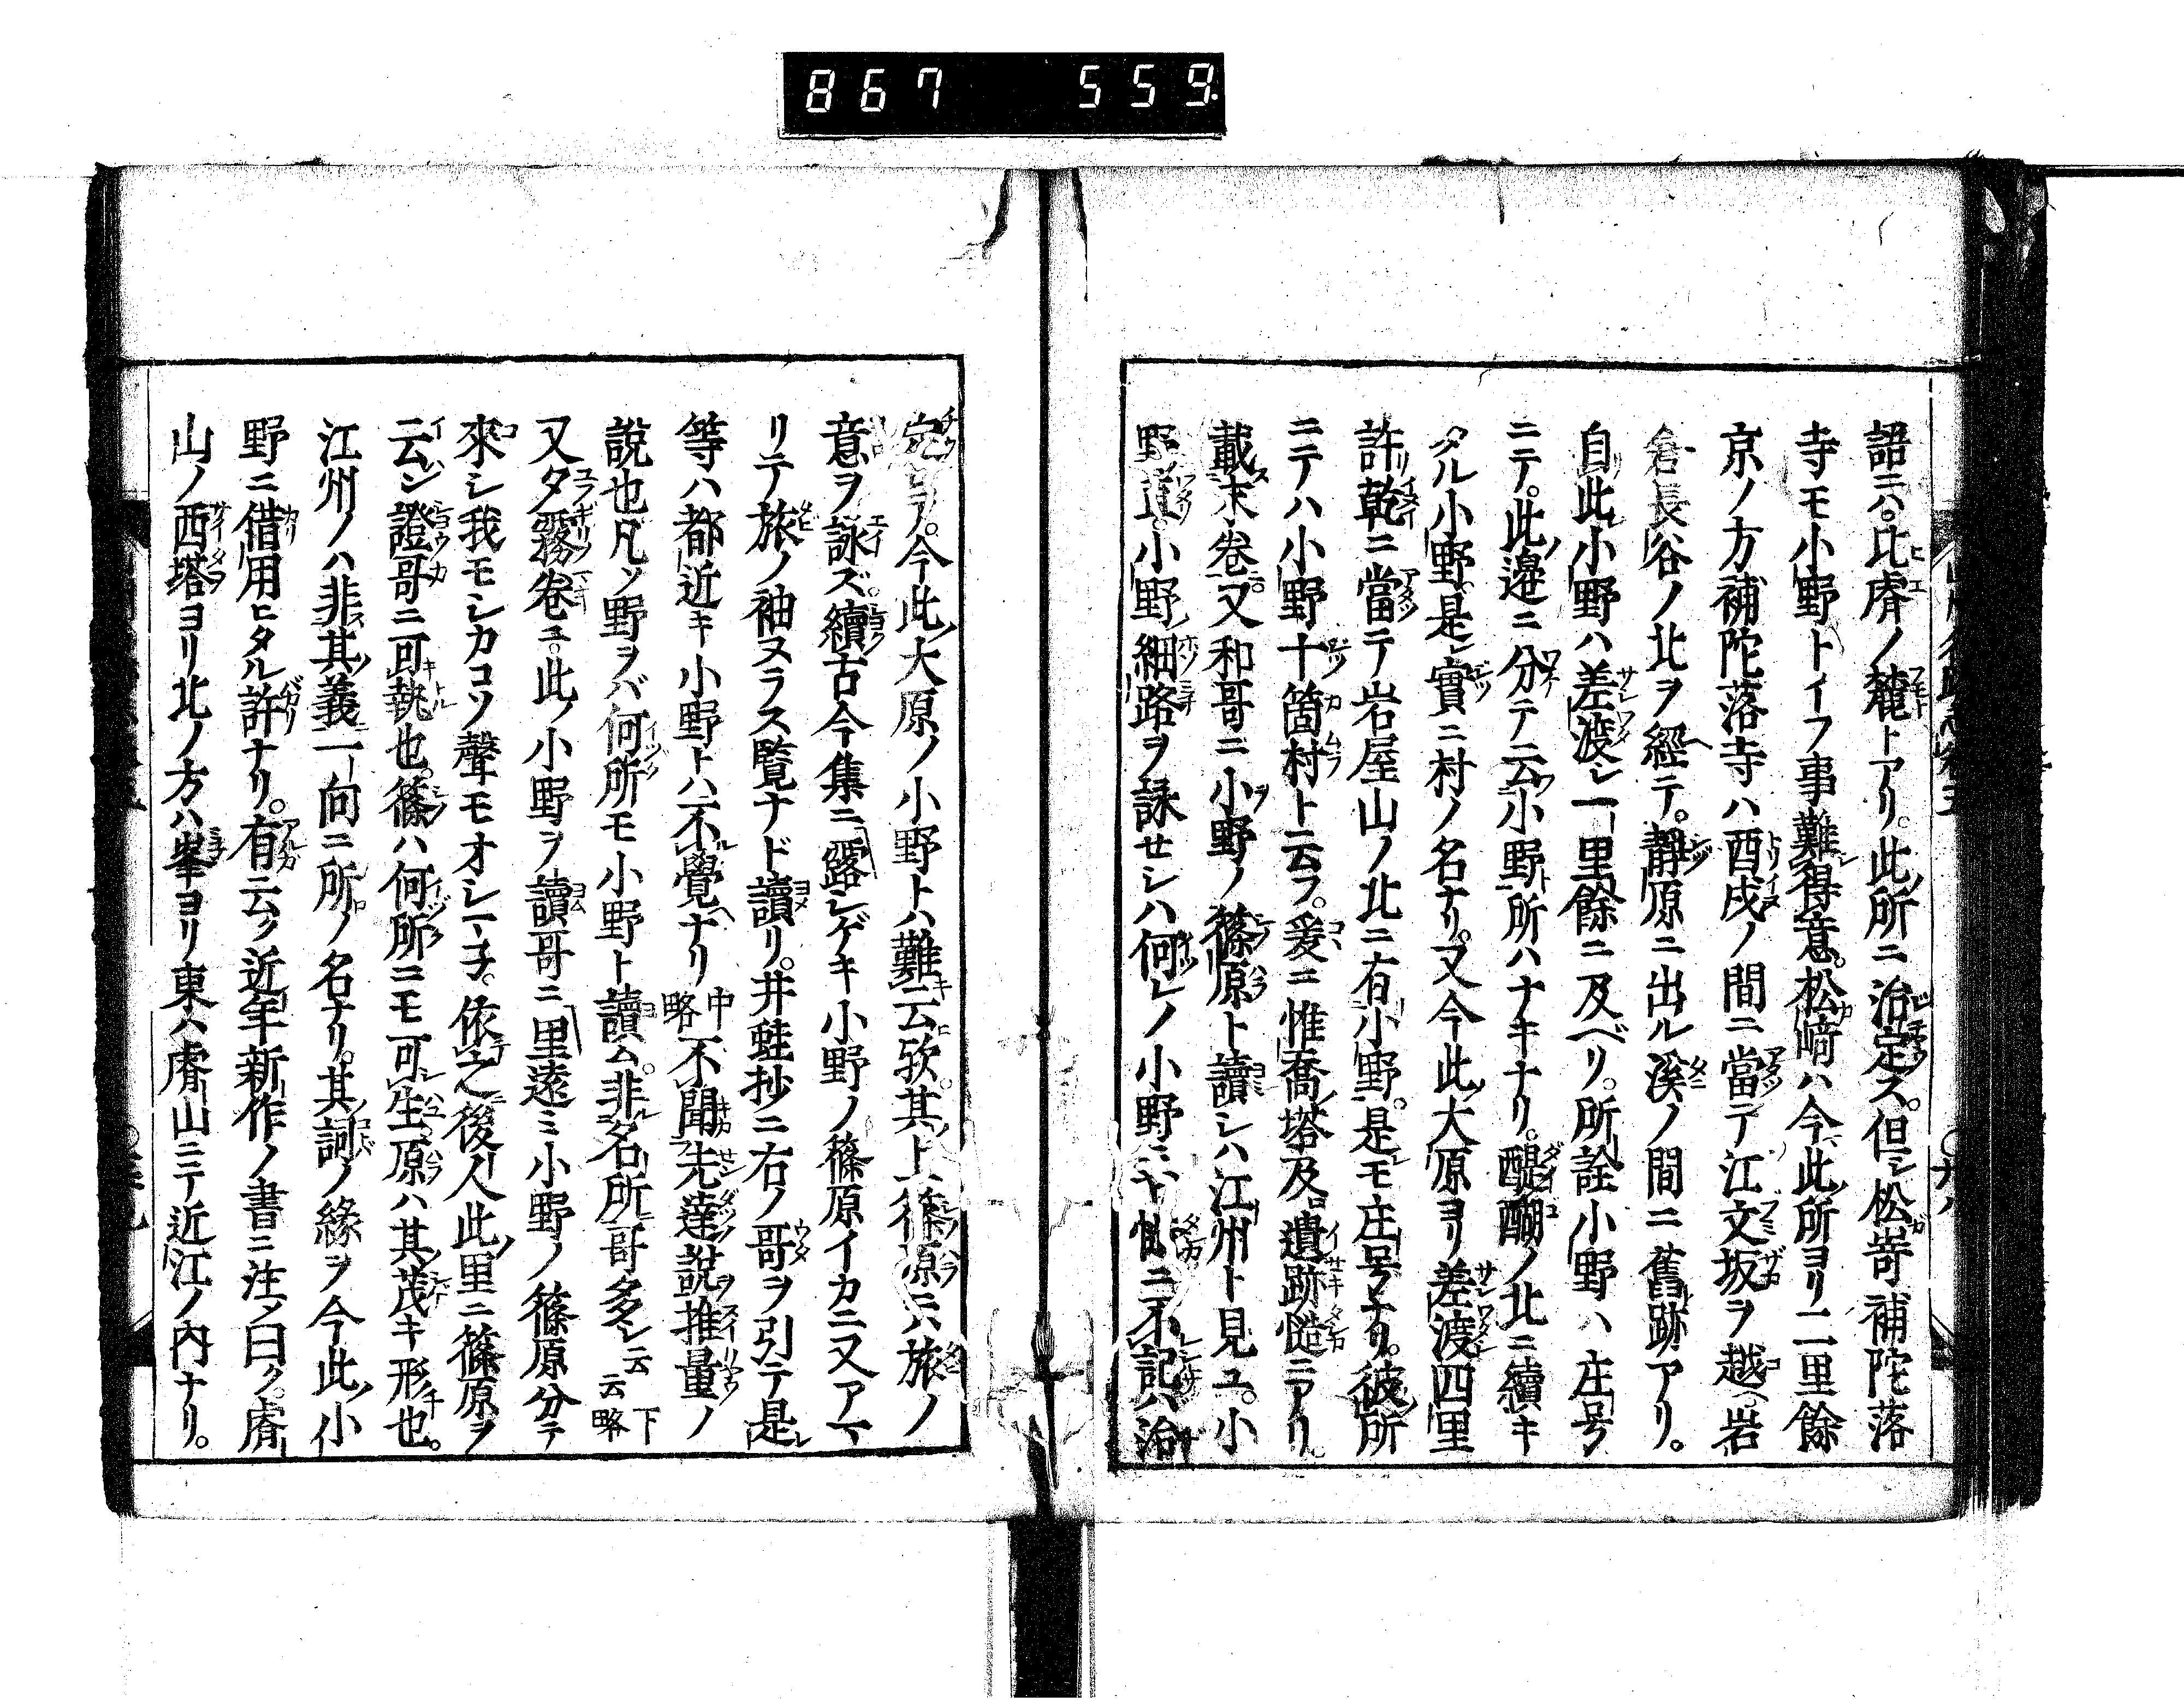 867 559
語ニハ。比睿ノ麓トアリ。此所ニ治定ス。但シ松嵜補陀落
寺モ小野トイフ事難得意。松﨑ハ今此所ヨリ二里餘
京ノ方補陀落寺ハ酉戌ノ間ニ當テ江文坂ヲ越ヘ岩
倉長谷ノ北ヲ經テ。靜原ニ出ル溪ノ間ニ舊跡アリ。
自此小野ハ差渡シ一里餘ニ及ベリ。所詮小野ハ庄号
ニテ。此邉ニ分テ云小野所ハナキナリ。醍醐ノ北ニ續キ
タル小野。是實ニ村ノ名ナリ。又今此大原ヨリ差渡四里
許乾ニ當テ岩屋山ノ北ニ有小野。是モ庄号ナリ。彼所
ニテハ小野十箇村ト云フ。爰ニ惟喬塔及遺跡慥ニアリ。
載末卷又和哥ニ小野ノ篠原ト讀シハ江州ト見ユ。小
野道。小野細路ヲ詠セシハ何レノ小野ニヤ慥ニ不記治
定セ。今此大原ノ小野トハ難云欤。其上篠原ニハ旅ノ
意ヲ詠ズ。續古今集ニ露シゲキ小野ノ篠原イカニ又アマ
リテ旅ノ袖ヌラス覽ナド讀リ。井蛙抄ニ右ノ哥ヲ引テ是
等ハ都近キ小野トハ不覺ナリ 中略 不聞先達說推量ノ
說也凡ソ野ヲバ何所モ小野ト讀ム。非名所哥多シ云云 下略
又夕霧卷ニ。此ノ小野ヲ讀哥ニ里遠ミ小野ノ篠原分テ
來シ我モシカコソ聲モオシマネ。依之後人此里ニ篠原ヲ
云シ證哥ニ可執也。篠ハ何所ニモ可生原ハ其茂キ形也。
江州ノハ非其義一向ニ所ノ名ナリ。其訶ノ緣ヲ今此小
野ニ借用ヒタル許ナリ。有云ク近年新作ノ書ニ注ノ曰ク。睿
山ノ西塔ヨリ北ノ方ハ峯ヨリ東ハ睿山ニテ近江ノ内ナリ。